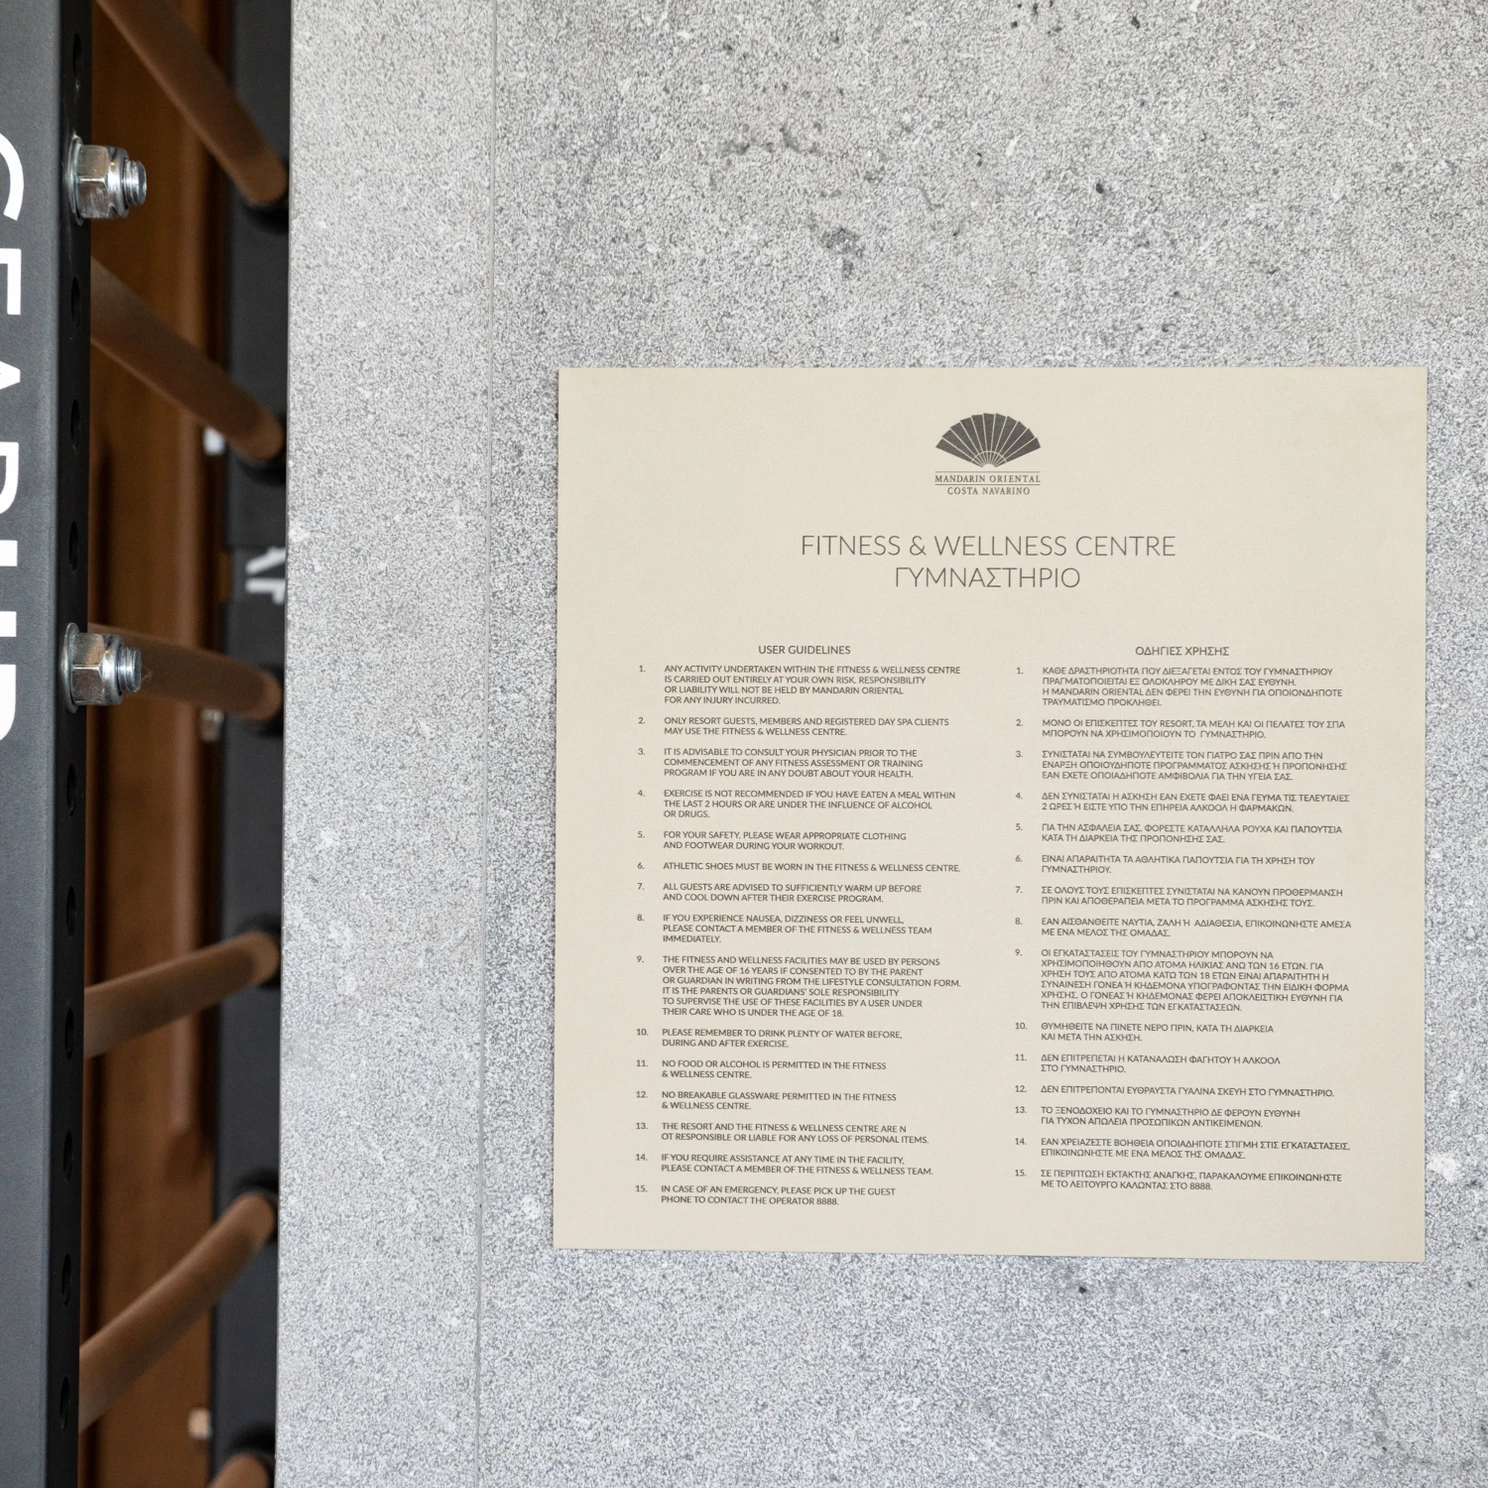 GEARHUB
AF
MANDARIN ORIENTAL
COSTA NAVARINO
FITNESS & WELLNESS CENTRE
ΓΥΜΝΑΣΤΗΡΙΟ
USER GUIDELINES
1. ANY ACTIVITY UNDERTAKEN WITHIN THE FITNESS & WELLNESS CENTRE
IS CARRIED OUT ENTIRELY AT YOUR OWN RISK. RESPONSIBILITY
OR LIABILITY WILL NOT BE HELD BY MANDARIN ORIENTAL
FOR ANY INJURY INCURRED.
2. ONLY RESORT GUESTS, MEMBERS AND REGISTERED DAY SPA CLIENTS
MAY USE THE FITNESS & WELLNESS CENTRE.
3. IT IS ADVISABLE TO CONSULT YOUR PHYSICIAN PRIOR TO THE
COMMENCEMENT OF ANY FITNESS ASSESSMENT OR TRAINING
PROGRAM IF YOU ARE IN ANY DOUBT ABOUT YOUR HEALTH.
4. EXERCISE IS NOT RECOMMENDED IF YOU HAVE EATEN A MEAL WITHIN
THE LAST 2 HOURS OR ARE UNDER THE INFLUENCE OF ALCOHOL
OR DRUGS.
5. FOR YOUR SAFETY, PLEASE WEAR APPROPRIATE CLOTHING
AND FOOTWEAR DURING YOUR WORKOUT.
6. ATHLETIC SHOES MUST BE WORN IN THE FITNESS & WELLNESS CENTRE.
7. ALL GUESTS ARE ADVISED TO SUFFICIENTLY WARM UP BEFORE
AND COOL DOWN AFTER THEIR EXERCISE PROGRAM.
8. IF YOU EXPERIENCE NAUSEA, DIZZINESS OR FEEL UNWELL,
PLEASE CONTACT A MEMBER OF THE FITNESS & WELLNESS TEAM
IMMEDIATELY.
9. THE FITNESS AND WELLNESS FACILITIES MAY BE USED BY PERSONS
OVER THE AGE OF 16 YEARS IF CONSENTED TO BY THE PARENT
OR GUARDIAN IN WRITING FROM THE LIFESTYLE CONSULTATION FORM.
IT IS THE PARENTS OR GUARDIANS' SOLE RESPONSIBILITY
TO SUPERVISE THE USE OF THESE FACILITIES BY A USER UNDER
THEIR CARE WHO IS UNDER THE AGE OF 18.
10. PLEASE REMEMBER TO DRINK PLENTY OF WATER BEFORE,
DURING AND AFTER EXERCISE.
11. NO FOOD OR ALCOHOL IS PERMITTED IN THE FITNESS
& WELLNESS CENTRE.
12. NO BREAKABLE GLASSWARE PERMITTED IN THE FITNESS
& WELLNESS CENTRE.
13. THE RESORT AND THE FITNESS & WELLNESS CENTRE ARE N
OT RESPONSIBLE OR LIABLE FOR ANY LOSS OF PERSONAL ITEMS.
14. IF YOU REQUIRE ASSISTANCE AT ANY TIME IN THE FACILITY,
PLEASE CONTACT A MEMBER OF THE FITNESS & WELLNESS TEAM.
15. IN CASE OF AN EMERGENCY, PLEASE PICK UP THE GUEST
PHONE TO CONTACT THE OPERATOR 8888.
ΟΔΗΓΙΕΣ ΧΡΗΣΗΣ
1. ΚΑΘΕ ΔΡΑΣΤΗΡΙΟΤΗΤΑ ΠΟΥ ΔΙΕΞΑΓΕΤΑΙ ΕΝΤΟΣ ΤΟΥ ΓΥΜΝΑΣΤΗΡΙΟΥ
ΠΡΑΓΜΑΤΟΠΟΙΕΙΤΑΙ ΕΞ ΟΛΟΚΛΗΡΟΥ ΜΕ ΔΙΚΗ ΣΑΣ ΕΥΘΥΝΗ.
Η MANDARIN ORIENTAL ΔΕΝ ΦΕΡΕΙ ΤΗΝ ΕΥΘΥΝΗ ΓΙΑ ΟΠΟΙΟΝΔΗΠΟΤΕ
ΤΡΑΥΜΑΤΙΣΜΟ ΠΡΟΚΛΗΘΕΙ.
2. ΜΟΝΟ ΟΙ ΕΠΙΣΚΕΠΤΕΣ ΤΟΥ RESORT, ΤΑ ΜΕΛΗ ΚΑΙ ΟΙ ΠΕΛΑΤΕΣ ΤΟΥ ΣΠΑ
ΜΠΟΡΟΥΝ ΝΑ ΧΡΗΣΙΜΟΠΟΙΟΥΝ ΤΟ ΓΥΜΝΑΣΤΗΡΙΟ.
3. ΣΥΝΙΣΤΑΤΑΙ ΝΑ ΣΥΜΒΟΥΛΕΥΤΕΙΤΕ ΤΟΝ ΓΙΑΤΡΟ ΣΑΣ ΠΡΙΝ ΑΠΟ ΤΗΝ
ΕΝΑΡΞΗ ΟΠΟΙΟΥΔΗΠΟΤΕ ΠΡΟΓΡΑΜΜΑΤΟΣ ΑΣΚΗΣΗΣ Ή ΠΡΟΠΟΝΗΣΗΣ
ΕΑΝ ΕΧΕΤΕ ΟΠΟΙΑΔΗΠΟΤΕ ΑΜΦΙΒΟΛΙΑ ΓΙΑ ΤΗΝ ΥΓΕΙΑ ΣΑΣ.
4. ΔΕΝ ΣΥΝΙΣΤΑΤΑΙ Η ΑΣΚΗΣΗ ΕΑΝ ΕΧΕΤΕ ΦΑΕΙ ΕΝΑ ΓΕΥΜΑ ΤΙΣ ΤΕΛΕΥΤΑΙΕΣ
2 ΩΡΕΣ Ή ΕΙΣΤΕ ΥΠΟ ΤΗΝ ΕΠΗΡΕΙΑ ΑΛΚΟΟΛ Η ΦΑΡΜΑΚΩΝ.
5. ΓΙΑ ΤΗΝ ΑΣΦΑΛΕΙΑ ΣΑΣ, ΦΟΡΕΣΤΕ ΚΑΤΑΛΛΗΛΑ ΡΟΥΧΑ ΚΑΙ ΠΑΠΟΥΤΣΙΑ
ΚΑΤΑ ΤΗ ΔΙΑΡΚΕΙΑ ΤΗΣ ΠΡΟΠΟΝΗΣΗΣ ΣΑΣ.
6. ΕΙΝΑΙ ΑΠΑΡΑΙΤΗΤΑ ΤΑ ΑΘΛΗΤΙΚΑ ΠΑΠΟΥΤΣΙΑ ΓΙΑ ΤΗ ΧΡΗΣΗ ΤΟΥ
ΓΥΜΝΑΣΤΗΡΙΟΥ.
7. ΣΕ ΟΛΟΥΣ ΤΟΥΣ ΕΠΙΣΚΕΠΤΕΣ ΣΥΝΙΣΤΑΤΑΙ ΝΑ ΚΑΝΟΥΝ ΠΡΟΘΕΡΜΑΝΣΗ
ΠΡΙΝ ΚΑΙ ΑΠΟΘΕΡΑΠΕΙΑ ΜΕΤΑ ΤΟ ΠΡΟΓΡΑΜΜΑ ΑΣΚΗΣΗΣ ΤΟΥΣ.
8. ΕΑΝ ΑΙΣΘΑΝΘΕΙΤΕ ΝΑΥΤΙΑ, ΖΑΛΗ Ή ΑΔΙΑΘΕΣΙΑ, ΕΠΙΚΟΙΝΩΝΗΣΤΕ ΑΜΕΣΑ
ΜΕ ΕΝΑ ΜΕΛΟΣ ΤΗΣ ΟΜΑΔΑΣ.
9. ΟΙ ΕΓΚΑΤΑΣΤΑΣΕΙΣ ΤΟΥ ΓΥΜΝΑΣΤΗΡΙΟΥ ΜΠΟΡΟΥΝ ΝΑ
ΧΡΗΣΙΜΟΠΟΙΗΘΟΥΝ ΑΠΟ ΑΤΟΜΑ ΗΛΙΚΙΑΣ ΑΝΩ ΤΩΝ 16 ΕΤΩΝ. ΓΙΑ
ΧΡΗΣΗ ΤΟΥΣ ΑΠΟ ΑΤΟΜΑ ΚΑΤΩ ΤΩΝ 18 ΕΤΩΝ ΕΙΝΑΙ ΑΠΑΡΑΙΤΗΤΗ Η
ΣΥΝΑΙΝΕΣΗ ΓΟΝΕΑ Ή ΚΗΔΕΜΟΝΑ ΥΠΟΓΡΑΦΟΝΤΑΣ ΤΗΝ ΕΙΔΙΚΗ ΦΟΡΜΑ
ΧΡΗΣΗΣ. Ο ΓΟΝΕΑΣ Ή ΚΗΔΕΜΟΝΑΣ ΦΕΡΕΙ ΑΠΟΚΛΕΙΣΤΙΚΗ ΕΥΘΥΝΗ ΓΙΑ
ΤΗΝ ΕΠΙΒΛΕΨΗ ΧΡΗΣΗΣ ΤΩΝ ΕΓΚΑΤΑΣΤΑΣΕΩΝ.
10. ΘΥΜΗΘΕΙΤΕ ΝΑ ΠΙΝΕΤΕ ΝΕΡΟ ΠΡΙΝ, ΚΑΤΑ ΤΗ ΔΙΑΡΚΕΙΑ
ΚΑΙ ΜΕΤΑ ΤΗΝ ΑΣΚΗΣΗ.
11. ΔΕΝ ΕΠΙΤΡΕΠΕΤΑΙ Η ΚΑΤΑΝΑΛΩΣΗ ΦΑΓΗΤΟΥ Ή ΑΛΚΟΟΛ
ΣΤΟ ΓΥΜΝΑΣΤΗΡΙΟ.
12. ΔΕΝ ΕΠΙΤΡΕΠΟΝΤΑΙ ΕΥΘΡΑΥΣΤΑ ΓΥΑΛΙΝΑ ΣΚΕΥΗ ΣΤΟ ΓΥΜΝΑΣΤΗΡΙΟ.
13. ΤΟ ΞΕΝΟΔΟΧΕΙΟ ΚΑΙ ΤΟ ΓΥΜΝΑΣΤΗΡΙΟ ΔΕ ΦΕΡΟΥΝ ΕΥΘΥΝΗ
ΓΙΑ ΤΥΧΟΝ ΑΠΩΛΕΙΑ ΠΡΟΣΩΠΙΚΩΝ ΑΝΤΙΚΕΙΜΕΝΩΝ.
14. ΕΑΝ ΧΡΕΙΑΖΕΣΤΕ ΒΟΗΘΕΙΑ ΟΠΟΙΑΔΗΠΟΤΕ ΣΤΙΓΜΗ ΣΤΙΣ ΕΓΚΑΤΑΣΤΑΣΕΙΣ,
ΕΠΙΚΟΙΝΩΝΗΣΤΕ ΜΕ ΕΝΑ ΜΕΛΟΣ ΤΗΣ ΟΜΑΔΑΣ.
15. ΣΕ ΠΕΡΙΠΤΩΣΗ ΕΚΤΑΚΤΗΣ ΑΝΑΓΚΗΣ, ΠΑΡΑΚΑΛΟΥΜΕ ΕΠΙΚΟΙΝΩΝΗΣΤΕ
ΜΕ ΤΟ ΛΕΙΤΟΥΡΓΟ ΚΑΛΩΝΤΑΣ ΣΤΟ 8888.